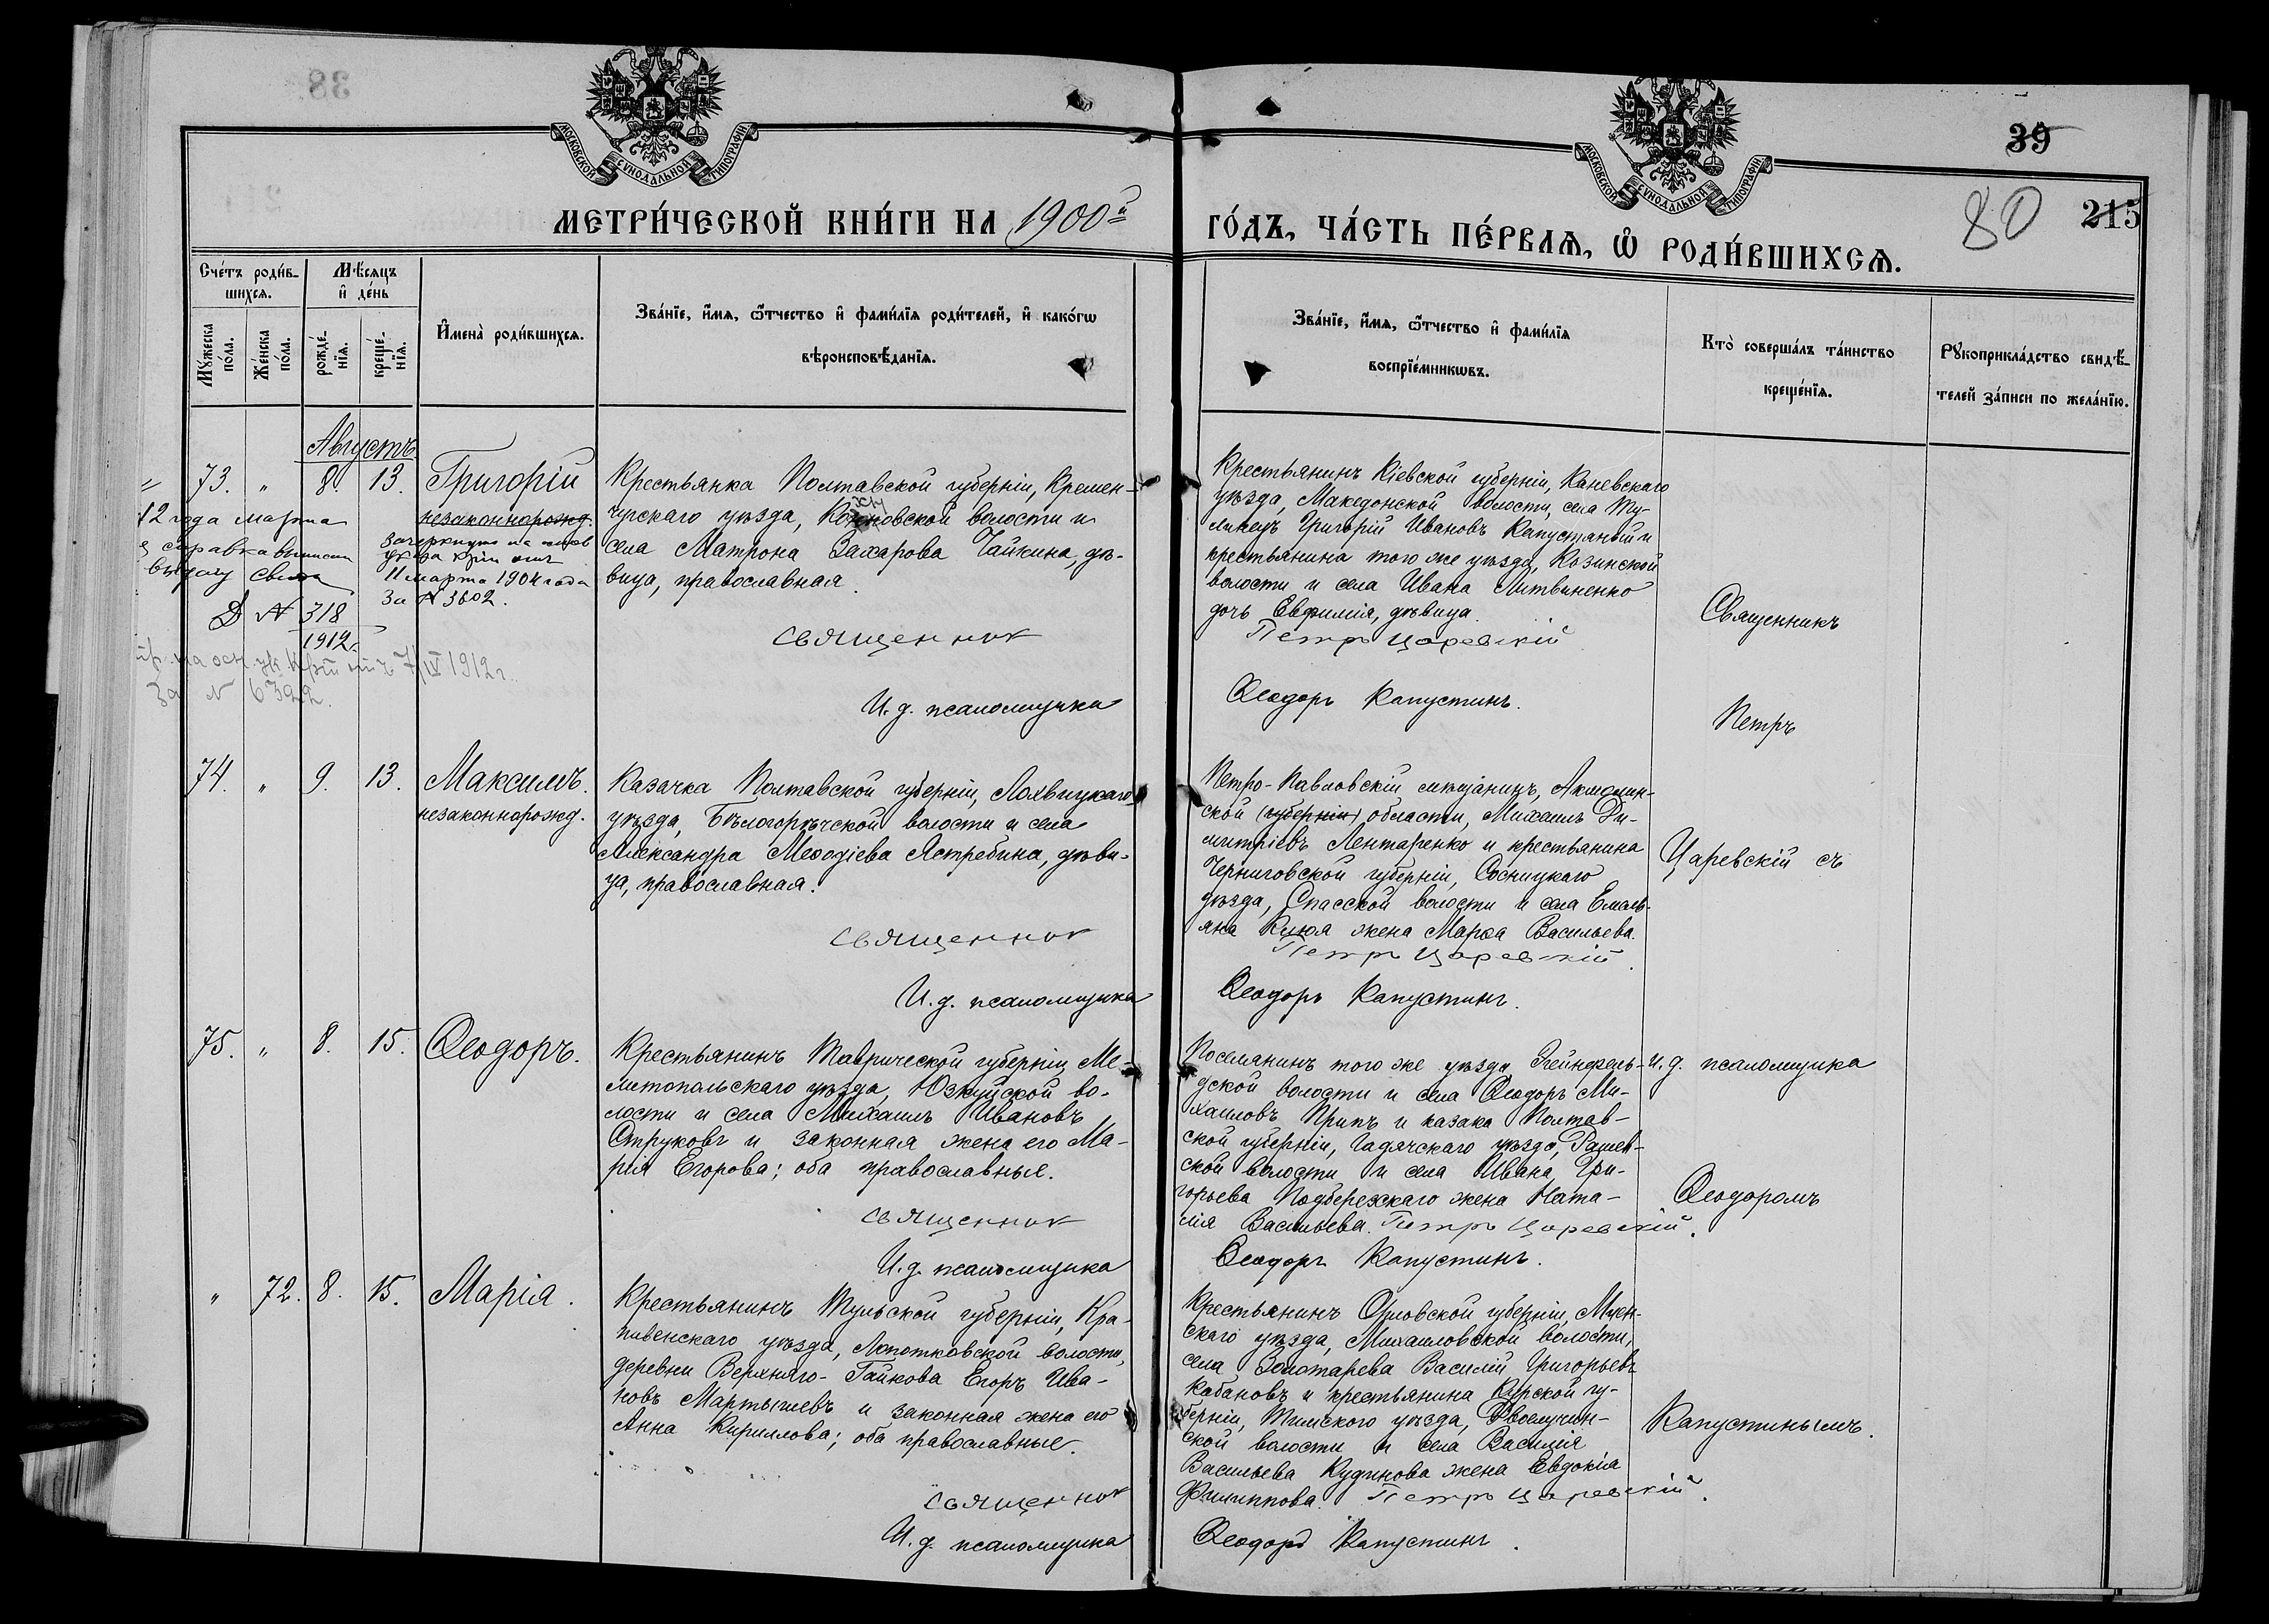 38
39
80
215
МОСКОВСКОЙ СѴНОДАЛЬНОЙ ТИПОГРАФІИ
МОСКОВСКОЙ СѴНОДАЛЬНОЙ ТИПОГРАФІИ
МЕТРИ́ЧЕСКОЙ КНИ́ГИ НА 1900й
ГО́ДЪ, ЧА́СТЬ ПЕ́РВАЯ, Ѡ҆ РОДИ́ВШИХСѦ.
Сче́тъ роди́в-
шихся.
Мѣ́сяцъ
и҆ де́нь
Мꙋ́жеска
по́ла.
Же́нска
по́ла.
рожде́-
нїя.
креще́-
нїя.
И҆мена̀ роди́вшихся.
Зва́нїе, и҆́мя, ѻ҆́тчество и҆ фами́лїя роди́телей, и҆ како́гѡ
вѣроисповѣ́данїя.
Зва́нїе, и҆́мя, ѻ҆́тчество и҆ фами́лїя
воспрїе́мникѡвъ.
Кто̀ соверша́лъ та́инство
креще́нїя.
Рꙋкоприкла́дство свидѣ́-
телей за́писи по жела́нїю.
Августъ.
73. " 8. 13. Григорій
незаконнорожд.
зачеркнуто на
указа
11 марта 1904 года
За № 3602.
12 года марта
справка
выдачу
№ 318
1912 г.
на осн. ук. от 7/IV 1912 г.
За № 6392.
Крестьянка Полтавской губерніи, Кремен-
чугскаго уѣзда, волости и
села Матрона Захарова Чайкина, дѣ-
вица, православная.
священник
И. д. псаломщика
Крестьянинъ Кіевской губерніи, Каневскаго
уѣзда, Македонской волости, села Ту-
линецъ Григорій Ивановъ Капустяный и
крестьянина того же уѣзда, Козинской
волости и села Ивана Литвиненко
дочь Евфимія, дѣвица.
Петръ Царевскій
Ѳеодоръ Капустинъ.
Священникъ
Петръ
74. " 9. 13. Максимъ.
незаконнорожд.
Казачка Полтавской губерніи, Лохвицкаго
уѣзда, Бѣлогорѣчской волости и села
Александра Меѳодіева Ястребина, дѣви-
ца, православная.
священник
И. д. псаломщика
Петро-Павловскій мѣщанинъ, Акмолин-
ской (губерніи) области, Михаилъ Ди-
митріевъ Лентаренко и крестьянина
Черниговской губерніи, Сосницкаго
уѣзда, Спасской волости и села Емель-
яна жена Марѳа Васильева.
Петръ Царевскій.
Ѳеодоръ Капустинъ.
Царевскій съ
75. " 8. 15. Ѳеодоръ.
Крестьянинъ Таврической губерніи, Ме-
литопольскаго уѣзда, Юзкуйской во-
лости и села Михаилъ Ивановъ
Струковъ и законная жена его Ма-
рія Егорова; оба православные.
священник
И. д. псаломщика
Поселянинъ того же уѣзда, Эйгенфель-
дской волости и села Ѳеодоръ Ми-
хаиловъ Припъ и казака Полтав-
ской губерніи, Гадячскаго уѣзда, Рашев-
ской волости и села Ивана Гри-
горьева Подбережскаго жена Ната-
лія Васильева. Петръ Царевскій.
Ѳеодоръ Капустинъ.
и. д. псаломщика
Ѳеодоромъ
" 72. 8. 15. Марія.
Крестьянинъ Тульской губерніи, Кра-
пивенскаго уѣзда, Лопотковской волости,
деревни Верхняго-Гайкова Егоръ Ива-
новъ Мартышевъ и законная жена его
Анна Кириллова; оба православные.
священник
И. д. псаломщика
Крестьянинъ Орловской губерніи, Мцен-
скаго уѣзда, Михаиловской волости,
села Золотарева Василій Григорьевъ
Кабановъ и крестьянина Курской гу-
берніи, Тимского уѣзда, Двоелучин-
ской волости и села Василія
Васильева Кудинова жена Евдокія
Филиппова. Петръ Царевскій.
Ѳеодоръ Капустинъ.
Капустинымъ.